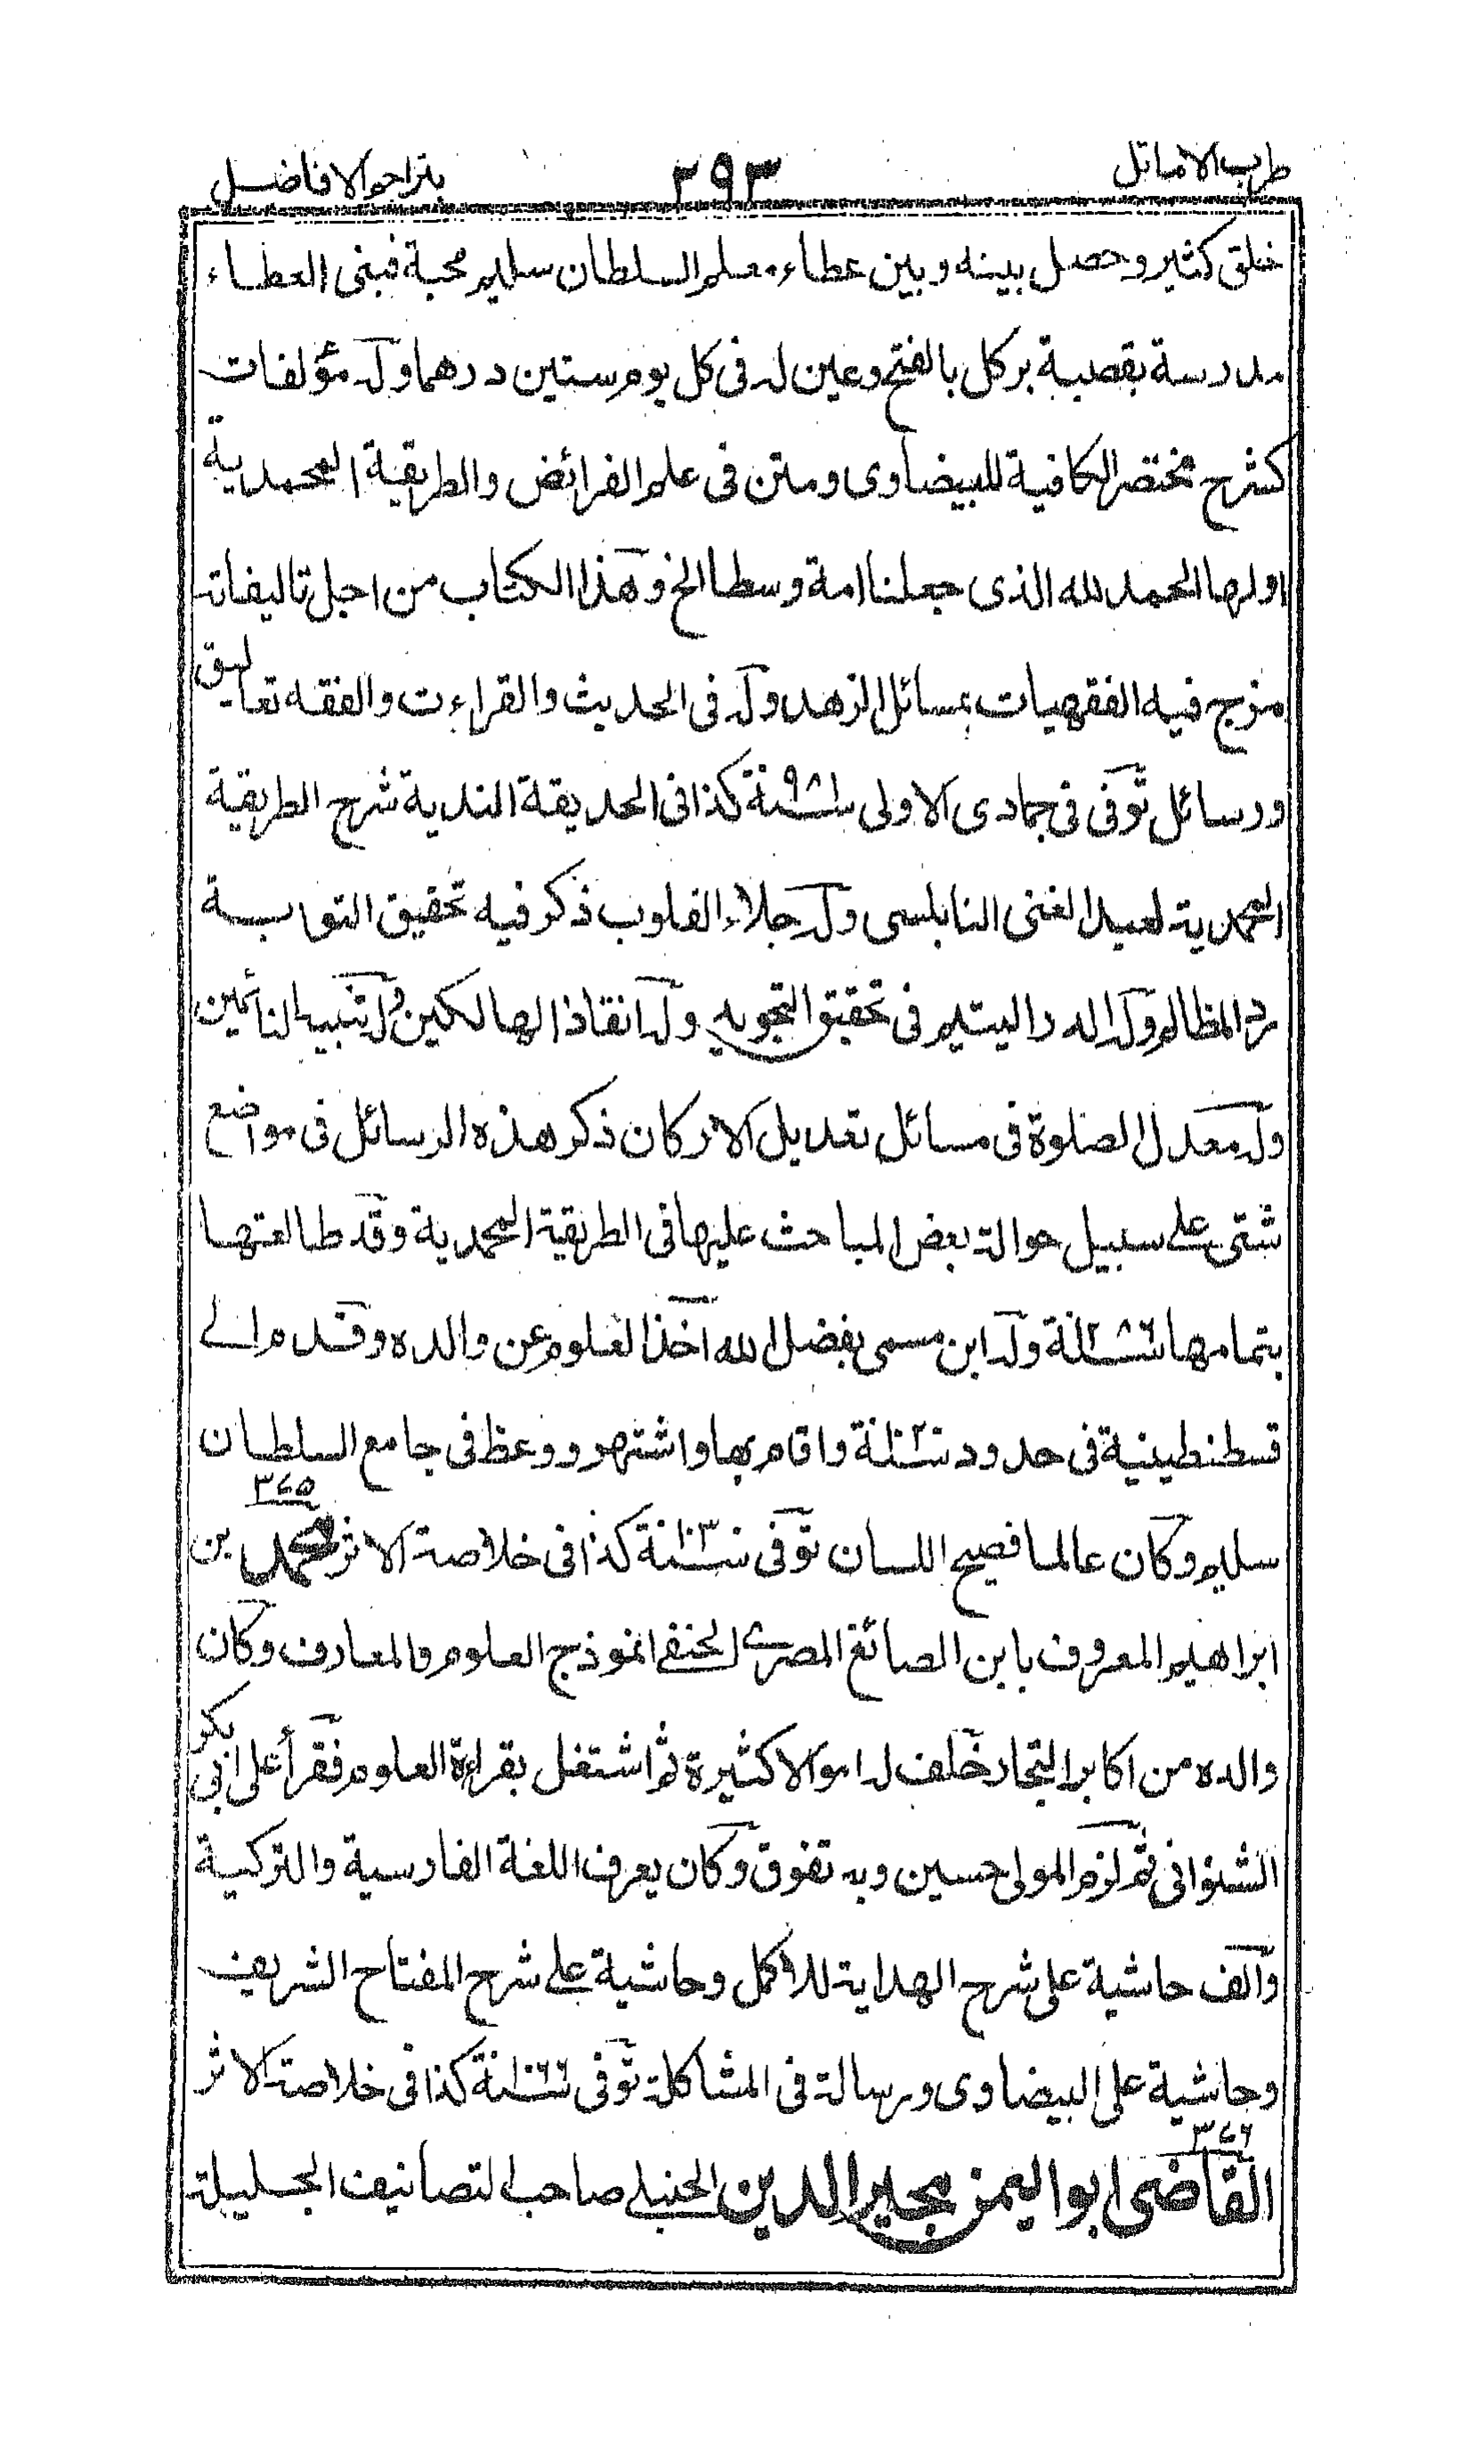 طرب الاماثل
٢٩٣
بتراجم الافاضل
خلق كثير وحصل بينه وبين عطاء معلم السلطان سليم محبة فبنى العطاء
مدرسة بقصبة بركل بالفتح وعين له فى كل يوم ستين درهما وله مؤلفات
كشرح مختصر الكافية للبيضاوى ومتن فى علم الفرائض والطريقة المحمدية
اولها الحمد لله الذى جعلنا امة وسطا الخ وهذا الكتاب من اجل تاليفاته
مزج فيه الفقهيات بمسائل الزهد وله فى الحديث والقراءت والفقه تعاليق
ورسائل توفى فى جمادى الاولى سنة ٩٨١ كذا فى الحديقة الندية شرح الطريقة
المحمدية لعبد الغنى النابلسى وله جلاء القلوب ذكر فيه تحقيق التوبة
رد المظالم وله الدر اليتيم فى تحقيق التجويد وله انقاذ الهالكين وله تنبيه النائمين
وله معدل الصلوة فى مسائل تعديل الاركان ذكر هذه الرسائل فى مواضع
شتى على سبيل حوالة بعض المباحث عليها فى الطريقة المحمدية وقد طالعتها
بتمامها سنة ١٢٨٦ وله ابن مسمى بفضل الله اخذ العلوم عن والده وقدم الى
قسطنطينية فى حدود سنة ١٠٢٠ واقام بها واشتهر ووعظ فى جامع السلطان
سليم وكان عالما فصيح اللسان توفى سنة ١٠٣٠ كذا فى خلاصة الاثر ٣٤٥ محمد بن
ابراهيم المعروف بابن الصائغ المصرى الحنفى انموذج العلوم والمعارف وكان
والده من اكابر التجار خلف له اموالا كثيرة ثم اشتغل بقراءة العلوم فقرأ على ابى بكر
الشنوانى ثم لزم المولى حسين وبه تفوق وكان يعرف اللغة الفارسية والتركية
والف حاشية على شرح الهداية للاكمل وحاشية على شرح المفتاح الشريف
وحاشية على البيضاوى ورسالة فى المشاكلة توفى سنة ١٠٦٦ كذا فى خلاصة الاثر
٣٤٦
القاضى ابو اليمن مجير الدين الحنبلى صاحب التصانيف الجليلة